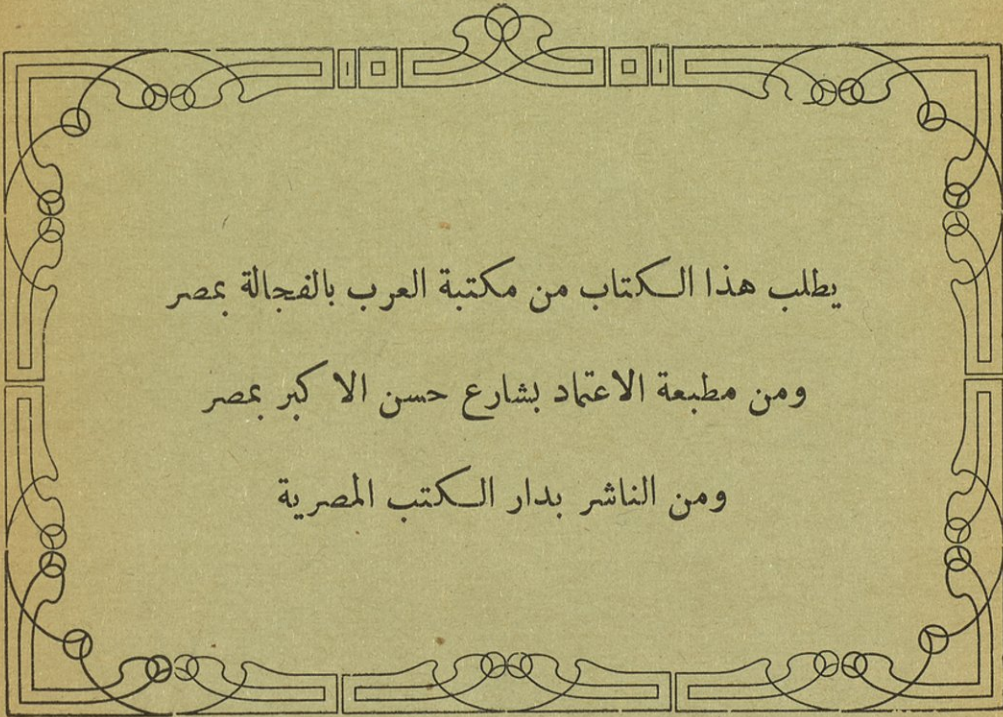 يطلب هذا الكتاب من مكتبة العرب بالفجالة بمصر
ومن مطبعة الاعتماد بشارع حسن الاكبر بمصر
ومن الناشر بدار الكتب المصرية